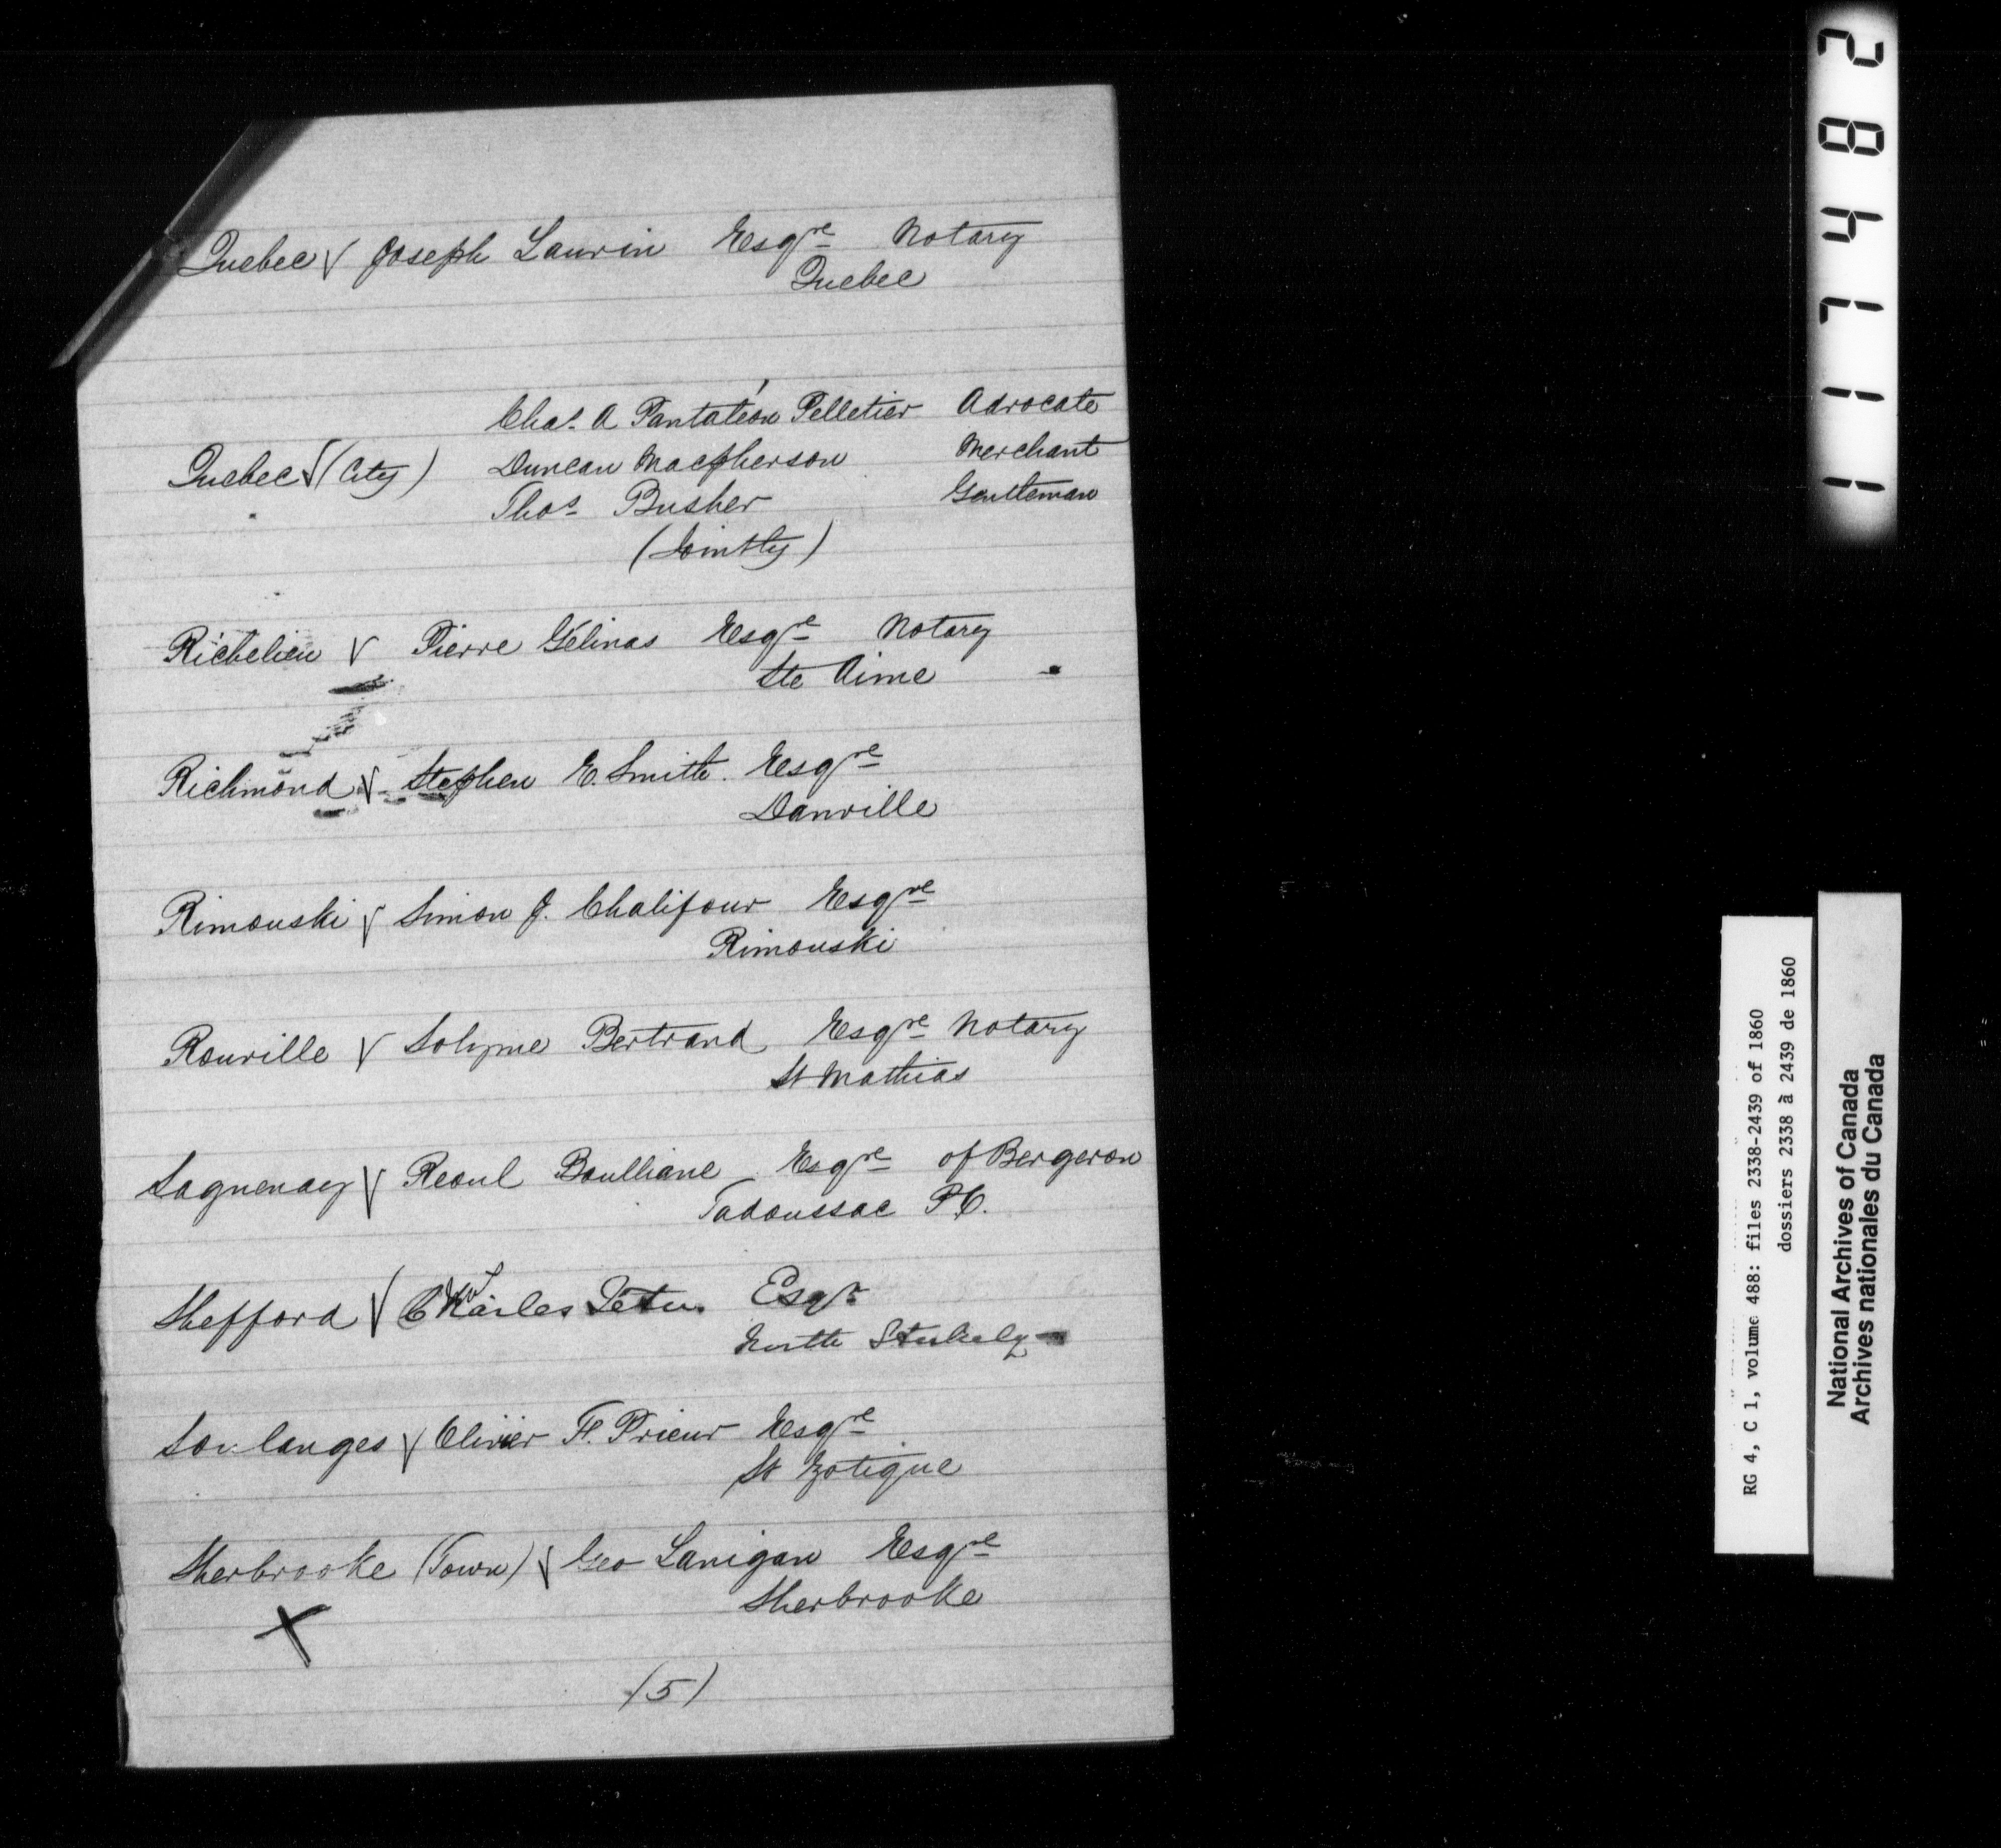 Quebec √ Joseph Laurin Esqre Notary
Quebec
Chas. A Pantaléon Pelletier Advocate
Quebec √ (City) Duncan Macpherson Merchant
Thos Busher Gentleman
(Jointly)
Richelieu √ Pierre Gélinas Esqre Notary
Ste Aime
Richmond √ Stephen E. Smith. Esqre
Danville
Rimouski √ Simon J. Chalifour Esqre
Rimouski
Rouville √ Solyme Bertrand Esqre Notary
St Mathias
Saguenay √ Reoul Boulliane Esqre of Bergeron
Tadoussac P.C.
Shefford √ Charles Tétu. Esqr
North Stukely
Soulanges √ Olivier F. Prieur Esqre
St Zotique
Sherbrooke (Town) √ Geo Lanigan Esqre
Sherbrooke
X
(5)
1 1 7 4 8 2
RG 4, C 1, volume 488: files 2338-2439 of 1860
dossiers 2338 à 2439 de 1860
National Archives of Canada
Archives nationales du Canada